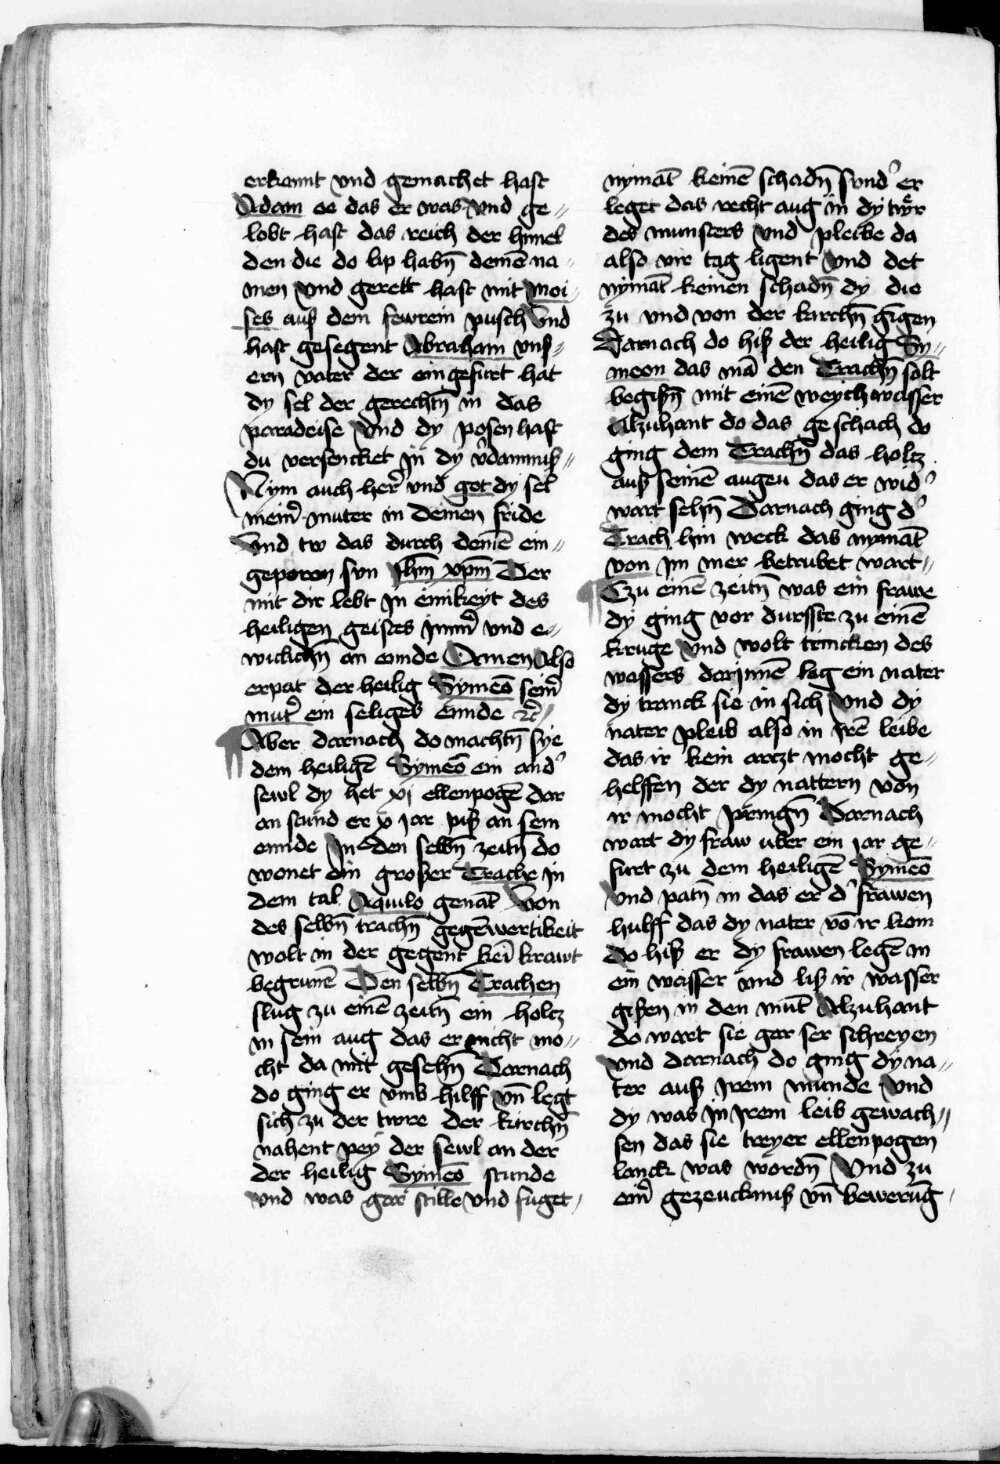 erkannt vnd gemachet hast
Adam ee das er was Vnd ge„
lobt hast das reich der himel
den die do lip habn̄ deinē na„
men Vnd gerett hast mit moi„
ses auß dem fewrein pusch Vnd
hast gesegent Abraham vnß„
ern vater der ein gefurt hat
dy sel der gerechtn̄ in das
paradeise Vnd dy posen hast
du versencket in dy v̓damnuß„
Nym auch her̄ vnd got dy sel
mein̄ muter in deinen fride
Vnd tw das durch deinē ein„
geporen sun Jhm̄ xpm̄ Der
mit dir lebt In einikeyt des
heiligen geistes Jmm̄ vnd e„
wiclichn̄ an ennde Amen Also
erpat der heilig Symeō sein̄
mut̓ ein seliges ennde ꝛc̄
Aber darnach do machtn̄ sye
dem heiligē Symeō ein and̓
sewl dy het xl ellenpogē dar
an stund er x jar piß an sein
ennde In den selbn̄ zeitn̄ do
wonet ein großer Trache in
dem tal Aquilo genāt Von
des selbn̄ trachn̄ gegēwertikeit
wolt in der gegent kei krawt
begrunē Den selbn̄ Trachen
slug zu einē zeitn̄ ein holcz
in sein aug das er nicht mo„
cht da mit gesehn̄ Darnach
do ging er vmb hilff vn̄ legt
sich zu der twre der kirchn̄
nahent pey der sewl an der
der heilig Symeō stunde
vnd was gar stille Vnd fuget„
nymāt keinē schadn̄ sund̓ er
leget das recht aug in dy twr
des munsters Vnd pleibe da
also vir tag ligent Vnd det
nymāt keinen schadn̄ dy die
zu vnd von der kirchn̄ gīgen
Darnach do hiß der heilig Sy„
meon das mā den Trachn̄ solt
begißn̄ mit einē weychwasser
Alzuhant do das geschach do
ging dem Trachn̄ das holtz
auß seinē augen das er wid̓
wart sehn̄ Darnach ging d̓
Trach hin weck das nymāt
von im mer betrubet wart„
Czu einē zeitn̄ was ein frawe
dy ging vor durste zu einē
kruge Vnd wolt trincken des
wassers darjnnē lag ein nater
dy tranck sie in sich Vnd dy
nater pleib also in Irē leibe
das ir kein arczt mocht ge„
helffen der dy nattern von
ir mocht prengn̄ Darnach
wart dy fraw uber ein jar ge„
furt zu dem heiligē Symeō
Vnd patn̄ in das er d̓ frawen
hulff das dy nater vō ir kom
do hiß er dy frawen legē in
ein wasser vnd liß ir wasser
gißen in den mūt Alzuhant
do wart sie gar ser schreyen
Vnd darnach do ging dy na„
ter auß Irem munde Vnd
dy was in Irem leib gewach„
sen das sie treyer ellenpogen
lanck was wordn̄ Vnd zu
ein̄ gezeucknuß vn̄ bewerūg„